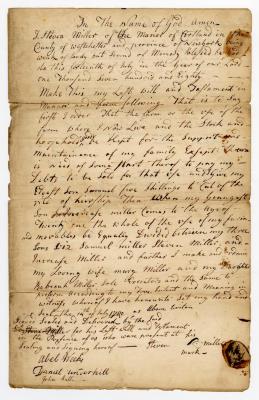 In The Name of God Amen
I Steven Miller of the Manor of Cortland in the
County of Westchester and province of Newyork being
weak of body but sound of Memory blessed be god
do this fourteenth of July in the year of our Lord
one thousand Seven Hundred and Eighty
Make this my Last will and Testament in
Manner and form following That is to Say
first I order that the the use of the
farm where I Now Live and the Stock and
be kept for the Support and
Maintainance of my family Except
is want of Some part therof to pay my
Debts to be Sold for that use and I give my
Son Samuel five Shillings to Cut of the
of heirship Then When my
Son Increase miller Comes to the age of
Twenty one the whole of the use of my farm
and movables be Equally Divided between my three
Sons Viz Samuel miller Steven Miller and
Increase Miller and farther I make and ordain
my Loving wife mary Miller and my
Miller Sole Executors and they Same
and Meaning in
witness whereof I have hereunto Set my hand and
Seal the 14th of July 1780 as above writen
Sealed and Delivered by the Said
Miller for his Last will and testament
in the presence of us who were present at his
Sealing and Signing hereof Steven miller
mark
Abel Weeks
Daniel
John